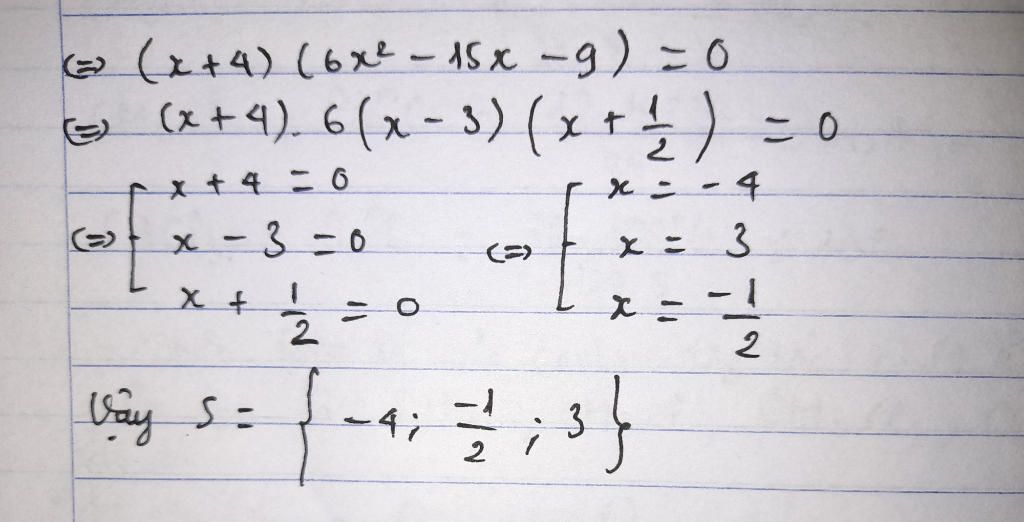 <=> (x + 4) (6x² - 15x - 9) = 0
<=> (x + 4). 6(x - 3) (x + 1/2) = 0
<=> [ x + 4 = 0 <=> [ x = -4
x - 3 = 0 x = 3
x + 1/2 = 0 x = -1/2
Vậy S = { -4; -1/2 ; 3 }